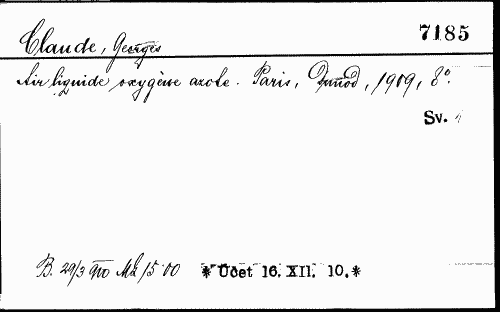 Claude, Georges
7185
Air liquide oxygène azote. Paris, Dunod, 1909, 8°.
Sv.
B. 29/3 910 Mk 15 00
*Účet 16. XII. 10.*